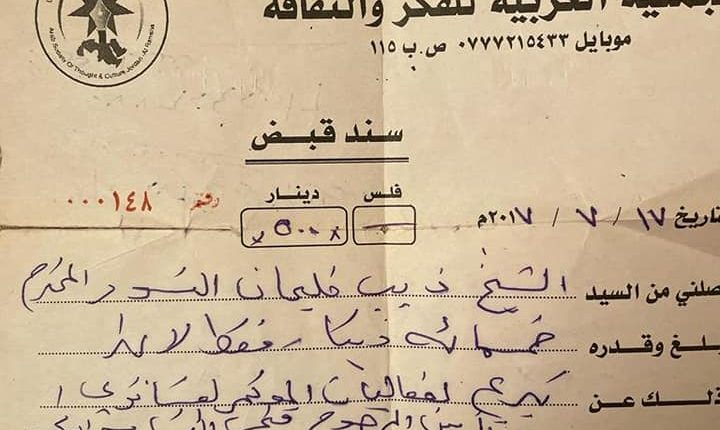 الجمعية العربية للفكر والثقافة
Arab Society Of Thought & Culture Jordan-Al Ramtha
موبايل ٠٧٧٧٢١٥٤٣٣ ص.ب ١١٥
سند قبض
رقم ٠٠٠١٤٨
فلس دينار
٥٠٠
تاريخ ١٧ / ٧ / ٢٠١٧م
صلني من السيد الشيخ ذيب فليحان السور المحترم
بلغ وقدره خمسمائة دينار فقط لا
ذلك عن تبرع لفعاليات المؤتمر